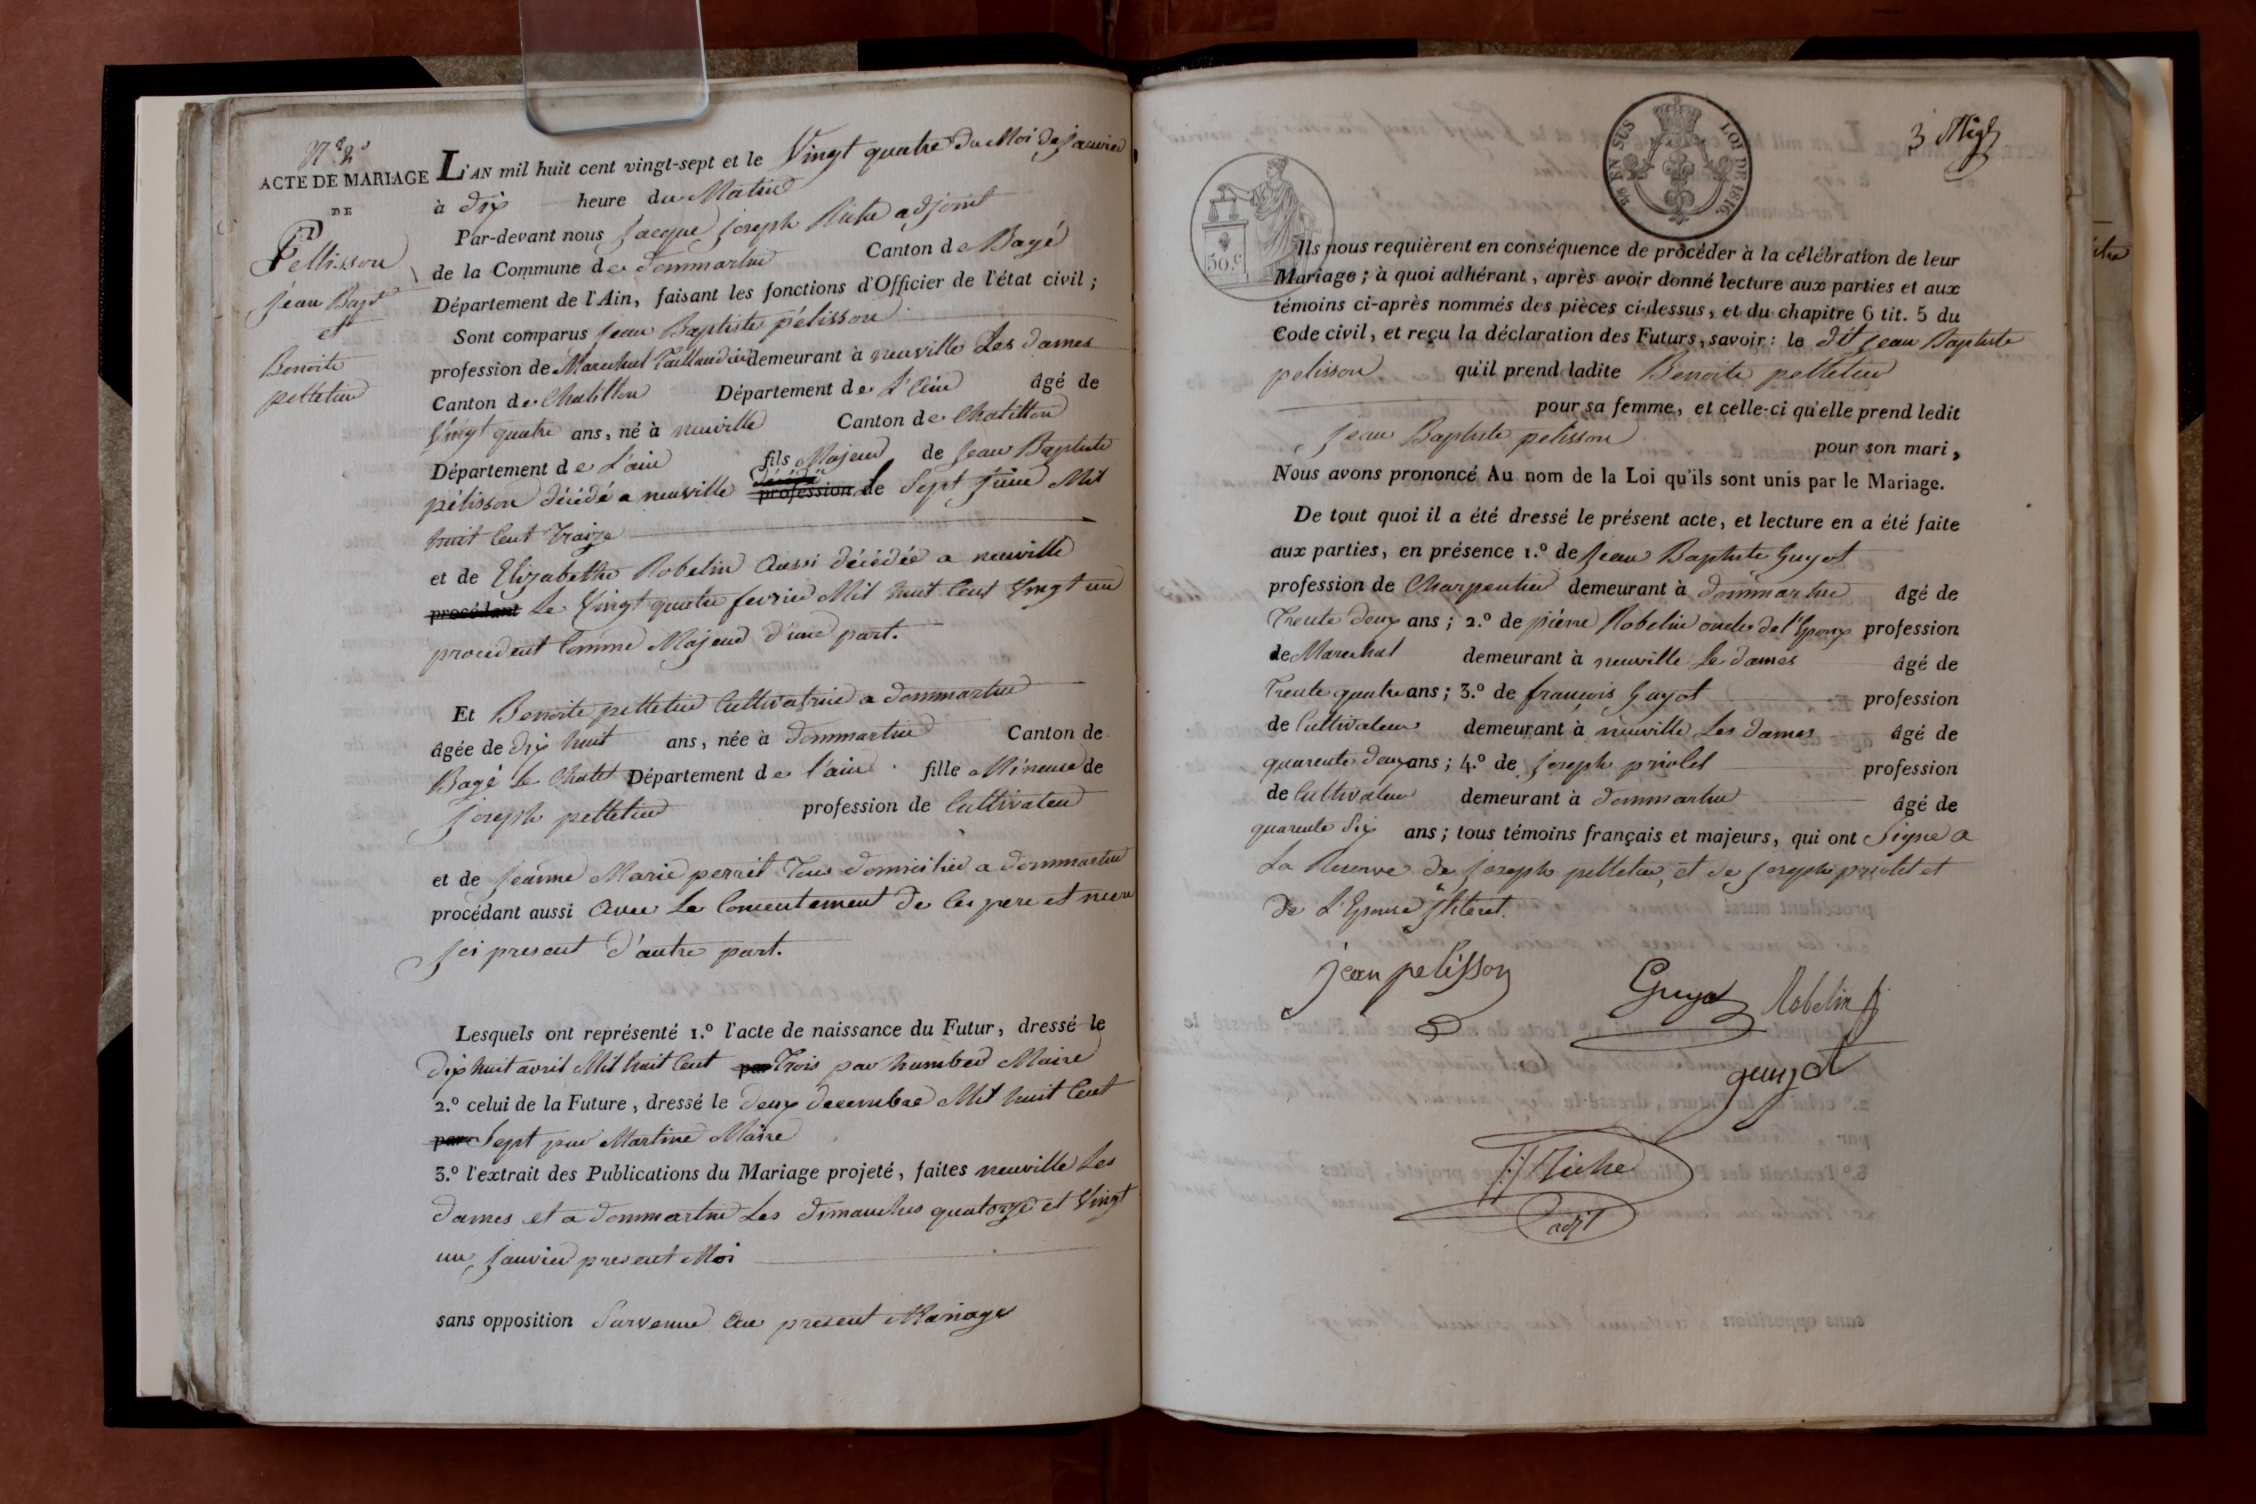 N° 2°
ACTE DE MARIAGE
DE
Pellisson
Jean Bapt
et
Benoite
pelletier
L'AN mil huit cent vingt-sept et le Vingt quatre du Moi de Janvier
à dix heure du Matin
Par-devant nous Jacque Joseph Riche adjoint
de la Commune de dommartin Canton de Bagé
Département de l'Ain, faisant les fonctions d'Officier de l'état civil ;
Sont comparus Jean Baptiste pélisson
profession de Marechal Taillandier demeurant à neuville Les dames
Canton de Chatillon Département de L'Ain âgé de
Vingt quatre ans, né à neuville Canton de Chatillon
Département de L'ain fils Majeur de Jean Baptiste
pélisson décédé a neuville décédé profession de le Sept Juin Mil
huit Cent Traize
et de Elizabethe Robelin Aussi décédée a neuville
procédant Le Vingt quatre fevrier Mil huit Cent Vingt un
procedent Comme Majeur d'une part.
Et Benoite pelletier Cultivatrice a dommartin
âgée de dix huit ans, née à dommartin Canton de
Bagé le Chatel Département de l'ain fille Mineure de
Joseph pelletier profession de Cultivateur
et de Jeanne Marie perret Tous domicilié a dommartin
procédant aussi avec Le Concentement de Ces pere et mere
Ici present d'autre part.
Lesquels ont représenté 1.º l'acte de naissance du Futur, dressé le
dix huit avril Mil huit Cent par Trois par humber Maire
2.º celui de la Future, dressé le deux decembre Mil huit Cent
par Sept par Martine Maire
3.º l'extrait des Publications du Mariage projeté, faites neuville Les
dames et a dommartin Les dimanches quatorze et Vingt
un Janvier present Moi
sans opposition Survenue au present Mariage
3
EN SUS
LOI DE 1816.
50.c
Ils nous requièrent en conséquence de procéder à la célébration de leur
Mariage ; à quoi adhérant, après avoir donné lecture aux parties et aux
témoins ci-après nommés des pièces ci-dessus, et du chapitre 6 tit. 5 du
Code civil, et reçu la déclaration des Futurs, savoir : le dit Jean Baptiste
pelisson qu'il prend ladite Benoite pelletier
pour sa femme, et celle-ci qu'elle prend ledit
Jean Baptiste pelisson pour son mari,
Nous avons prononcé Au nom de la Loi qu'ils sont unis par le Mariage.
De tout quoi il a été dressé le présent acte, et lecture en a été faite
aux parties, en présence 1.º de Jean Baptiste Guyot
profession de Charpentier demeurant à dommartin âgé de
Trente deux ans ; 2.º de pierre Robelin oncle de l'Epoux profession
de Marechal demeurant à neuville Le dames âgé de
Trente quatre ans ; 3.º de françois Guyot profession
de Cultivateur demeurant à neuville Les dames âgé de
quarente deux ans ; 4.º de Joseph priolet profession
de Cultivateur demeurant à dommartin âgé de
quarente Six ans ; tous témoins français et majeurs, qui ont Signe a
La Reserve de Joseph pelletier, et de Joseph priolet et
de L'Epouse Jliteret.
jean pelisson
Guyot Robelin
guyot
JJ Riche
adjt